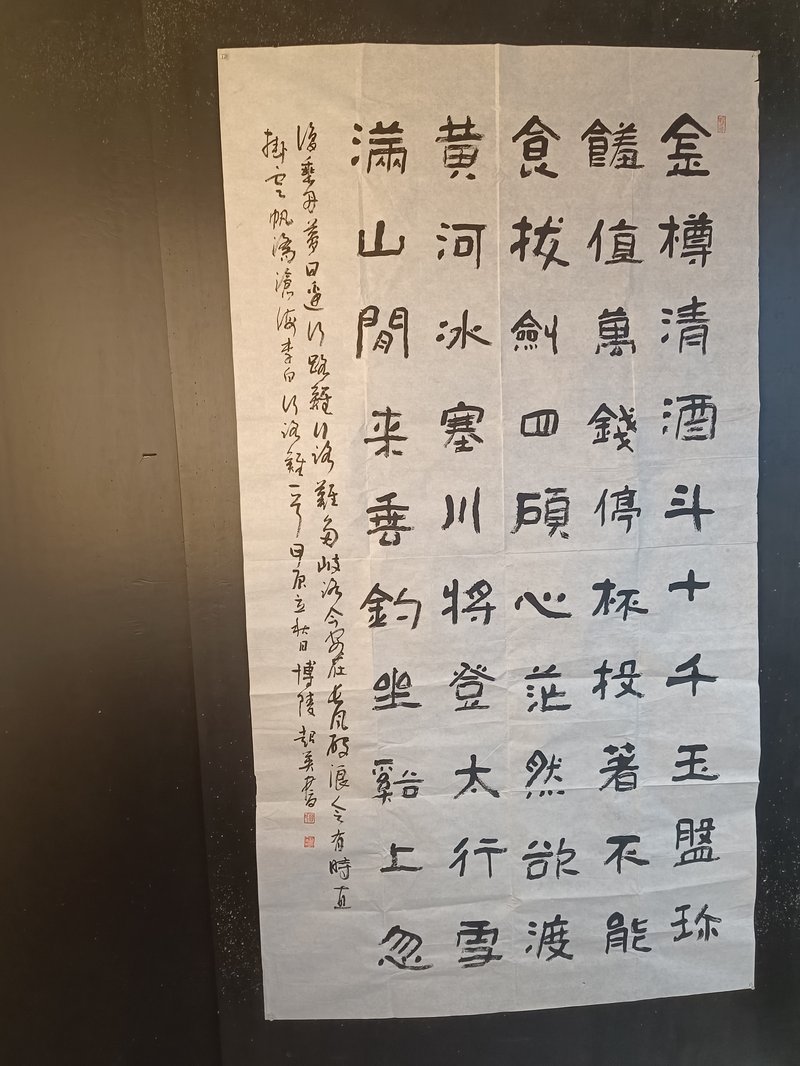 金樽清酒斗十千玉盤珎
饈值萬錢停杯投著不能
食拔劍四顧心茫然欲渡
黃河冰塞川將登太行雪
滿山閒来垂釣坐谿上忽
復乘舟夢日邊行路難行路難多岐路今安在長風破浪會有時直
掛雲帆濟滄海李白行路難一首立秋日博陵